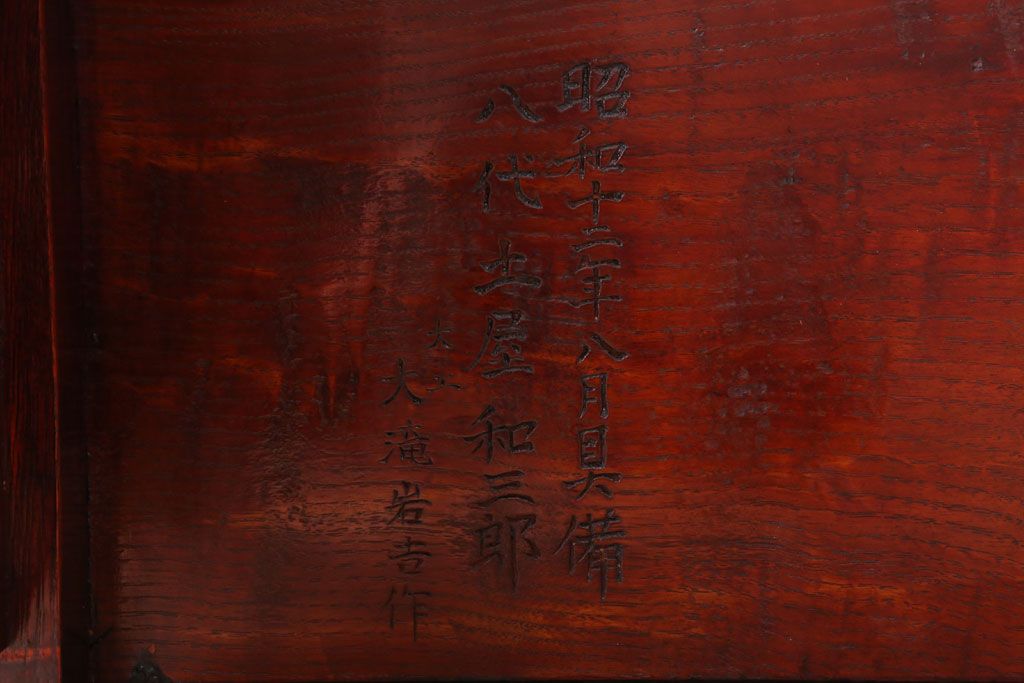 昭和十二年八月具備
八代土屋和三郎
大工
大滝岩吉作